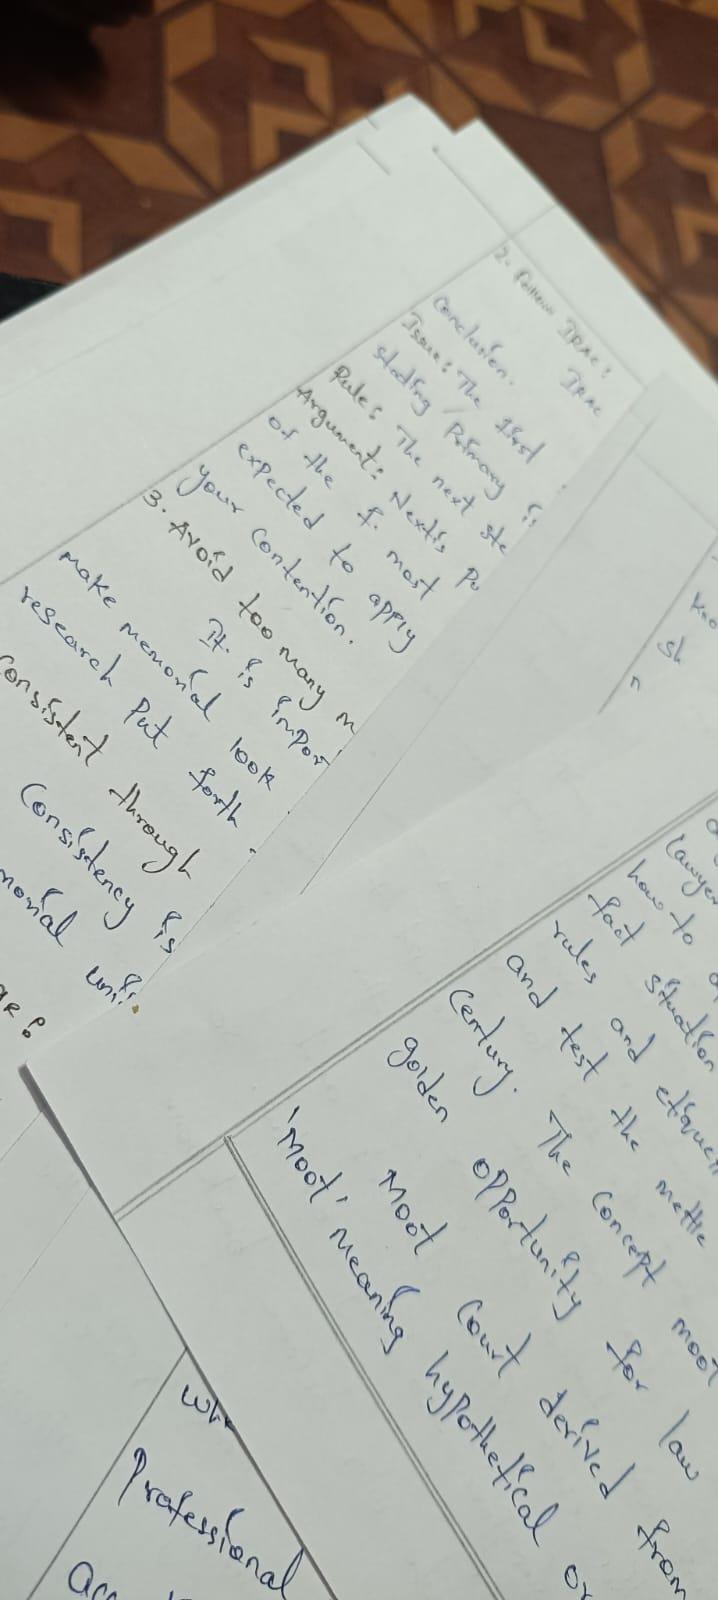 2. Follow IRAC:
IRAC
Conclusion.
Issue: The first
stating / Primary is
Rule: The next ste
Argument: Next is Po
of the f. most
expected to apply
your contention.
3. Avoid too many m
It is impor
make memorial look
research Put forth
Consistent through
Consistency is
morial uni
AR:
sh
n
lawyer
how to
fact situation
rules and etiquett
and test the mettle
century. The concept moot
golden opportunity for law
Moot Court derived from
'Moot' meaning hypothetical or
Professional